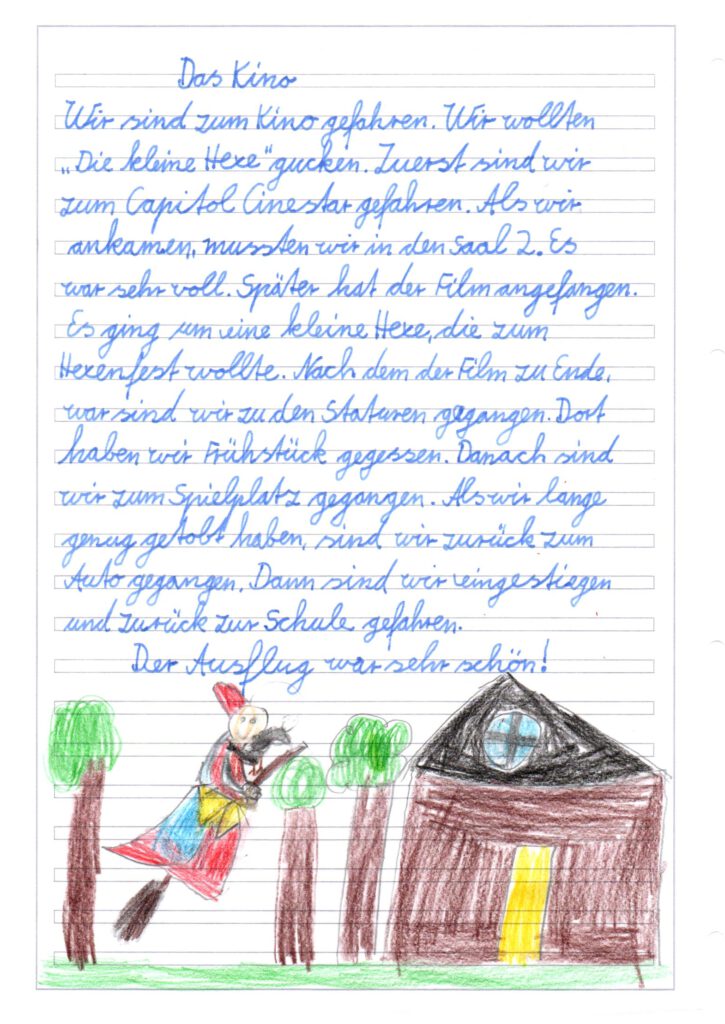 Das Kino
Wir sind zum Kino gefahren. Wir wollten
„Die kleine Hexe“ gucken. Zuerst sind wir
zum Capitol Cinestar gefahren. Als wir
ankamen, mussten wir in den Saal 2. Es
war sehr voll. Später hat der Film angefangen.
Es ging um eine kleine Hexe, die zum
Hexenfest wollte. Nach dem der Film zu Ende,
war sind wir zu den Staturen gegangen. Dort
haben wir Frühstück gegessen. Danach sind
wir zum Spielplatz gegangen. Als wir lange
genug getobt haben, sind wir zurück zum
Auto gegangen. Dann sind wir eingestiegen
und zurück zur Schule gefahren.
Der Ausflug war sehr schön!